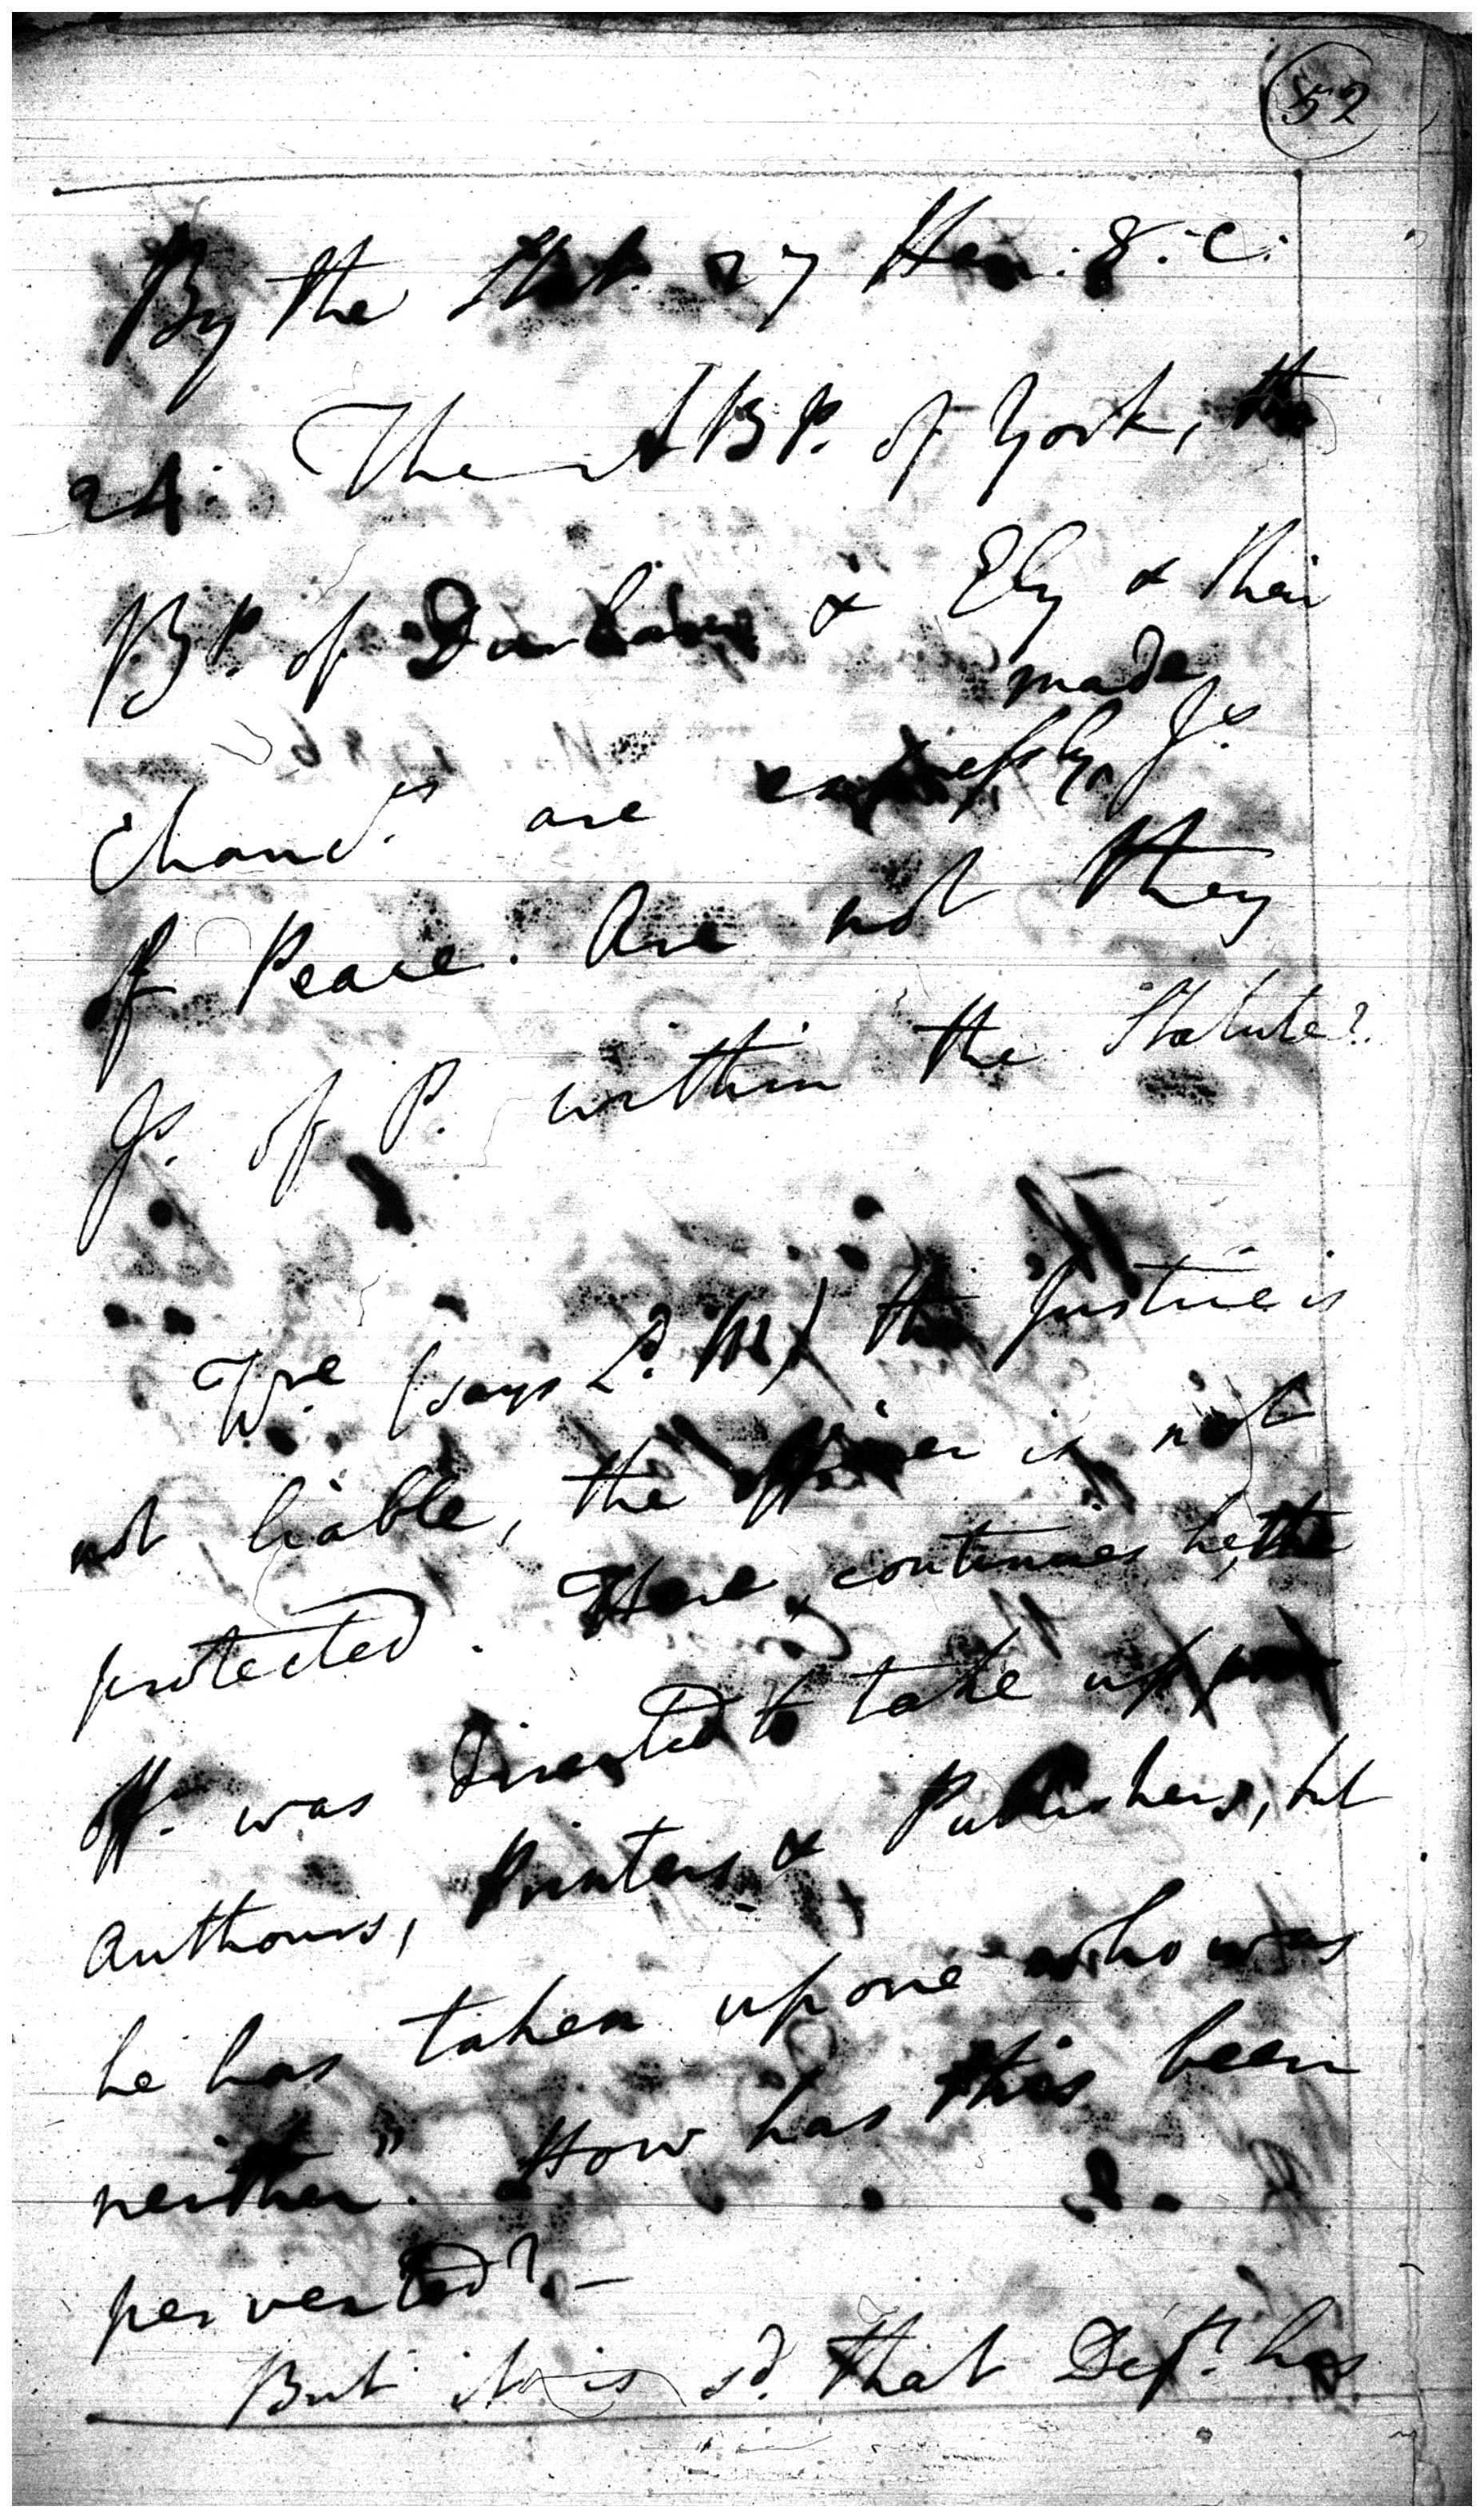 52
By the Stat. 27 Hen: 8. c.
24. The ABP. of York, the
BP. of Durham & Ely & their
made
Chancrs. are expressly Js.
of Peace. Are not they
Js. of P. within the Statute?
Wre (says L. M) the Justice is
not liable, the officer is not
protected. Here, continues he, the
offr. was directed to take up
Authours, Printers & Publishers, but
he has taken up one who was
neither". How has this been
perverted? —
But it is sd. that Deft. has